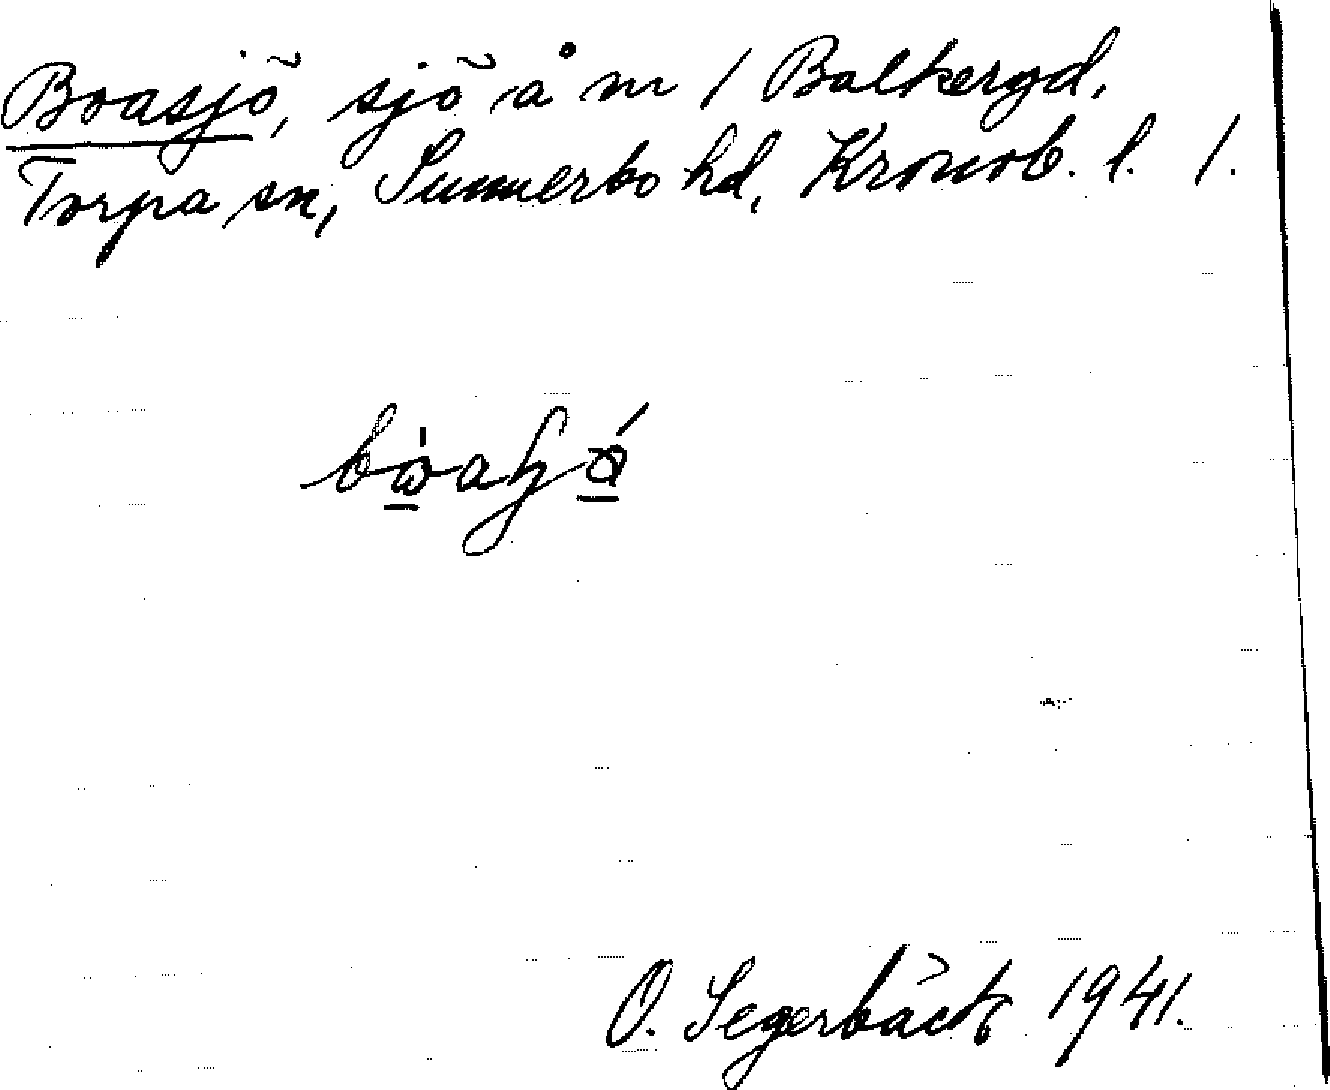 Boasjö, sjö å m / Balkergd,
Torpa sn, Sunnerbo hd, Kronob. l. 1.
O. Segerbäck 1941.